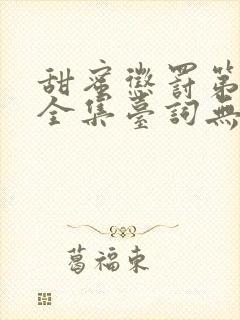 甜蜜懲罰第
全集臺詞無
葛福東